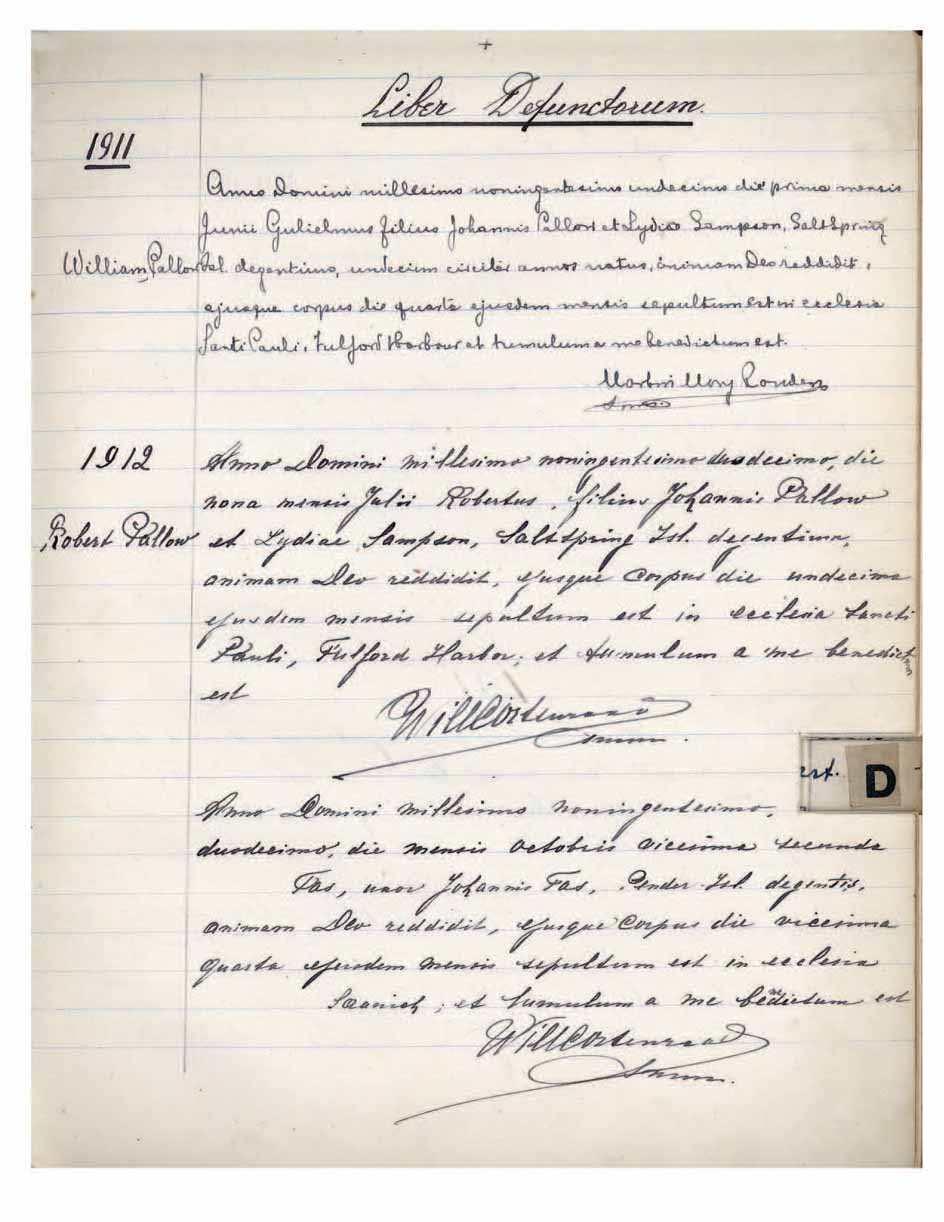 +
Liber Defunctorum.
1911
Anno Domini millesimo noningentesimo undecimo die prima mensis
Junii Gulielmus filius Johannis Pallow et Lydiae Sampson, SaltSpring
William Pallow Isl. degentium, undecim circiter annos natus, animam Deo reddidit,
ejusque corpus die quarta ejusdem mensis sepultum est in ecclesia
Santi Pauli, Fulford Harbour et tumulum a me benedictum est.
1912
Anno Domini millesimo noningentesimo duodecimo, die
nona mensis Julii Robertus, filius Johannis Pallow
Robert Pallow et Lydiae Sampson, SaltSpring Isl. degentium,
animam Deo reddidit, ejusque corpus die undecima
ejusdem mensis sepultum est in ecclesia Sancti
Pauli, Fulford Harbor; et tumulum a me benedictum
est
Will Cortenraad
smm.
ert. D
Anno Domini millesimo noningentesimo,
duodecimo, die mensis octobris vicesima secunda
Tas, uxor Johannis Tas, Pender Isl. degentis,
animam Deo reddidit, ejusque corpus die vicesima
quarta ejusdem mensis sepultum est in ecclesia
Saanich; et tumulum a me benedictum est
Will Cortenraad
smm.